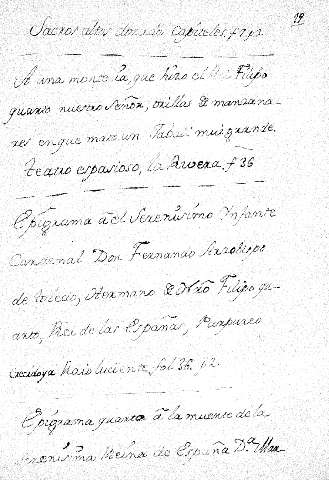 Sacros altos dorados Capiteles. f 7. p 2.
A una monteria, que hizo el Rei Filipo
quarto nuestro Señor, orillas de manzana-
res en que mato un Jabali mui grande.
teatro espasioso, la Rivera. f 36
Epigrama à el Serenisimo Ynfante
Cardenal Don Fernando Arzobispo
de toledo, Hermano de Nrõ Filipo qu-
arto, Rei de las Españas, Purpureo
Raio luciente, fol. 38. p. 2.
Epigrama quarto à la muerte de la
serenisima Reina de España Dª. Mar-